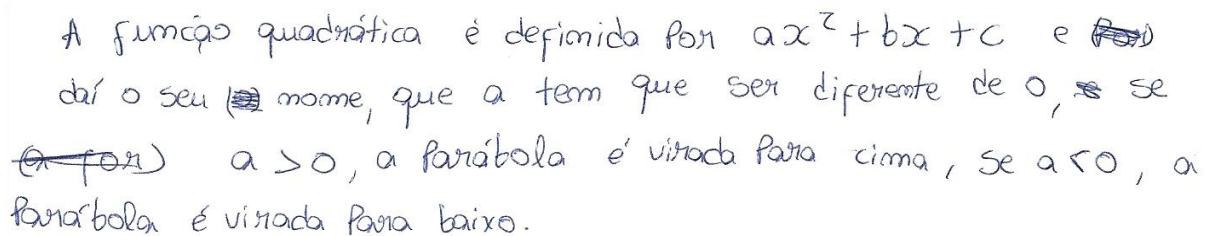 A função quadrática é definida por ax² + bx + c e
daí o seu nome, que a tem que ser diferente de 0, se
a > 0, a parábola é virada para cima, se a < 0, a
parábola é virada para baixo.